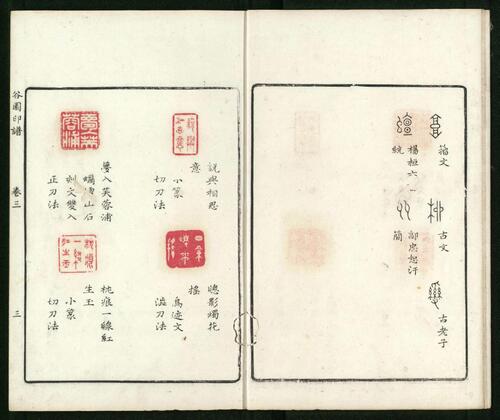 籀文
古文
古老子
楊桓六
統
郭忠恕汗
簡
說與相思
意
小篆
切刀法
牕影燭花
搖
鳥迹文
澁刀法
夢入芙蓉浦
山石
刻文雙入
正刀法
枕痕一線紅
生玉
小篆
切刀法
谷園印譜
卷三
三